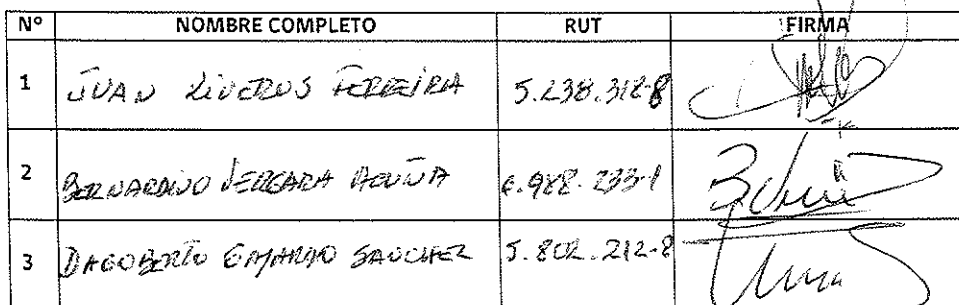 Nº NOMBRE COMPLETO RUT FIRMA
1 JUAN RIVEROS FERREIRA 5.238.318-8
2 BERNARDINO VERGARA ACUÑA 6.988.233-1
3 DAGOBERTO GAJARDO SANCHEZ 5.802.212-8